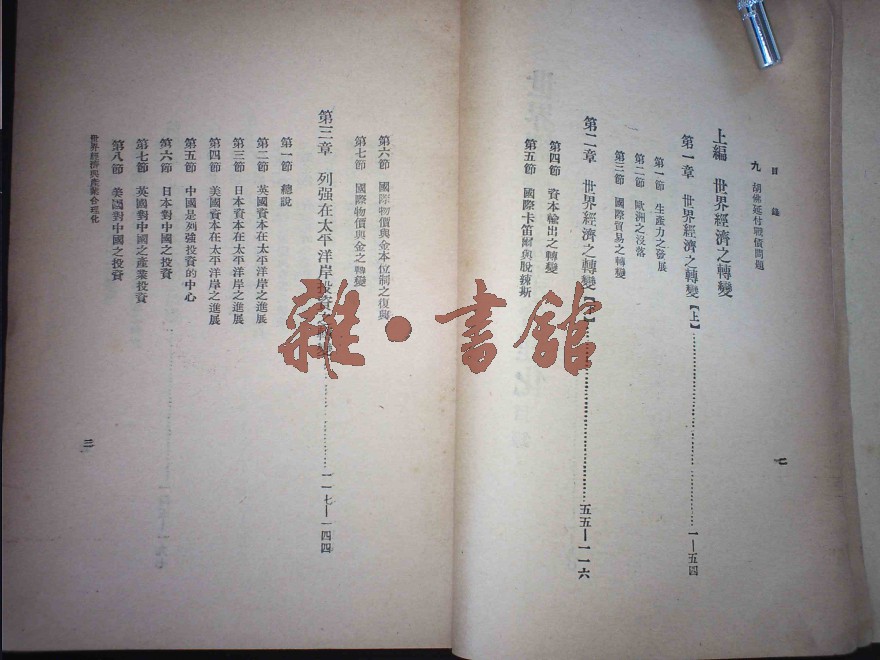 目錄
九 胡佛延付戰債問題
上編 世界經濟之轉變
第一章 世界經濟之轉變【上】 一—五四
第一節 生產力之發展
第二節 歐洲之沒落
第三節 國際貿易之轉變
第二章 世界經濟之轉變 五五—一一六
第四節 資本輸出之轉變
第五節 國際卡笛爾與脫辣斯
第六節 國際物價與金本位制之復興
第七節 國際物價與金之轉變
第三章 列强在太平洋岸投資 一一七—一四四
第一節 總說
第二節 英國資本在太平洋岸之進展
第三節 日本資本在太平洋岸之進展
第四節 美國資本在太平洋岸之進展
第五節 中國是列強投資的中心
第六節 日本對中國之投資
第七節 英國對中國之產業投資
第八節 美國對中國之投資
世界經濟與產業合理化
三
雜·書館